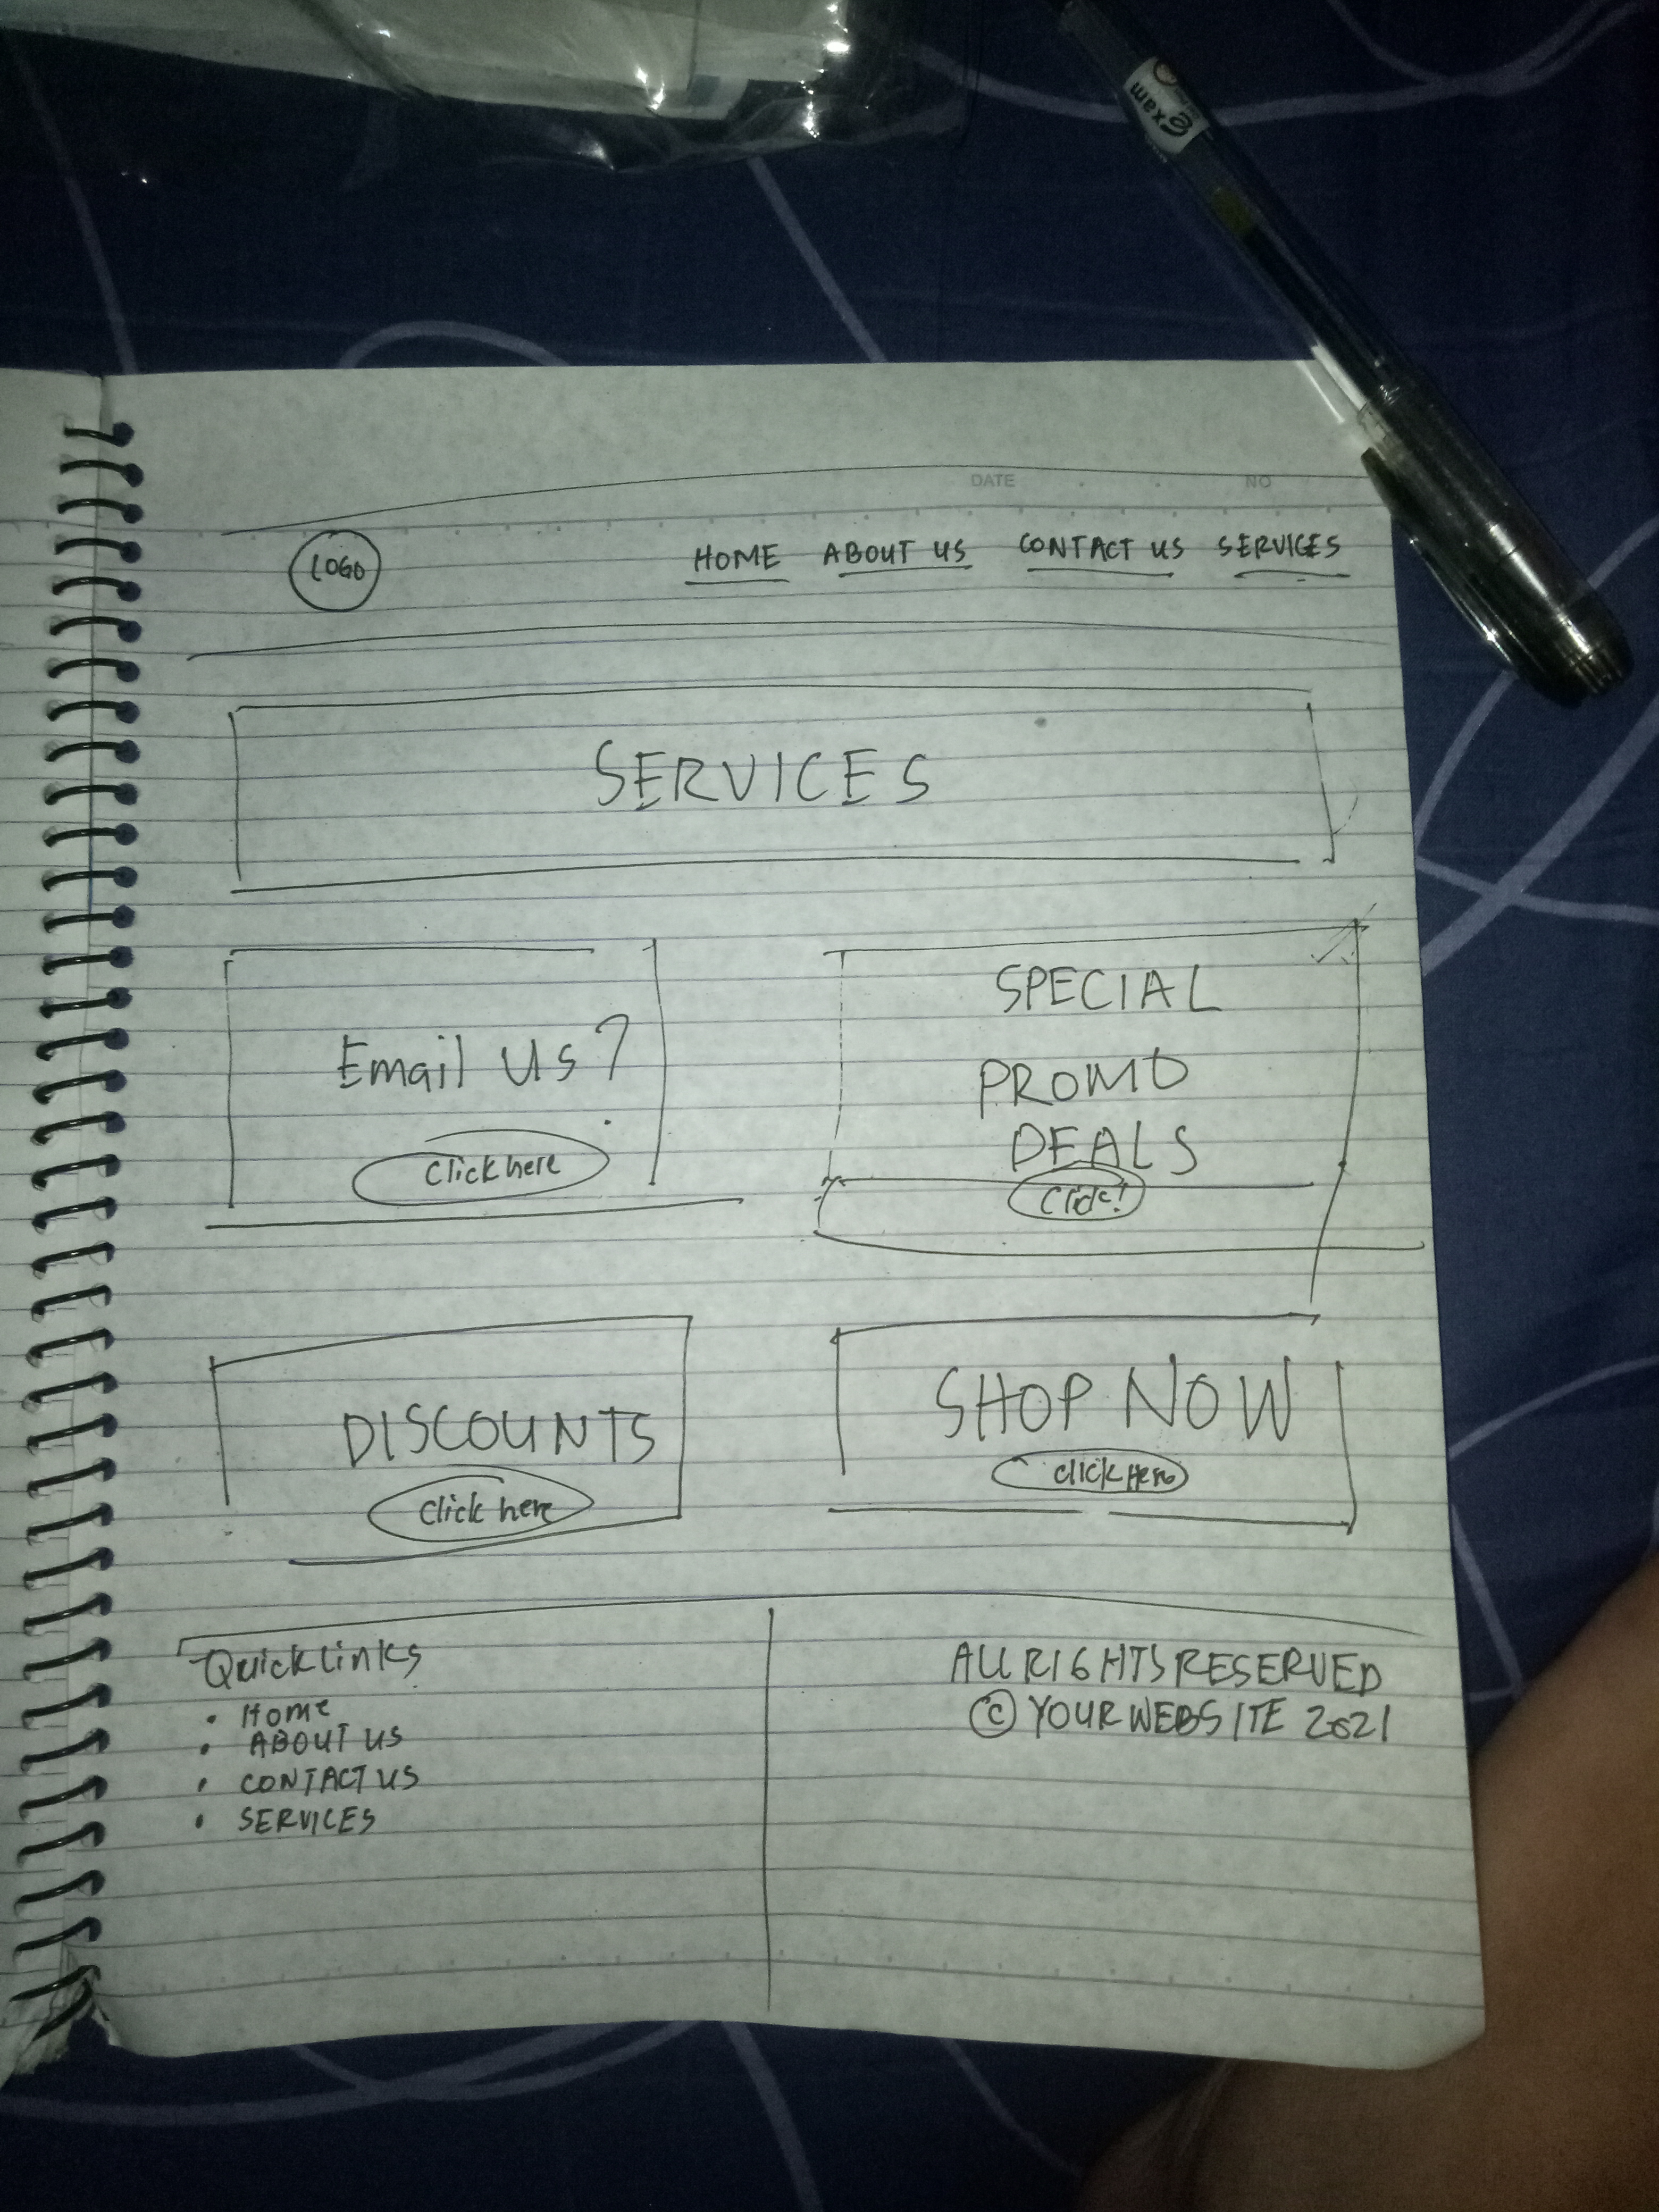 exam
DATE NO
LOGO HOME ABOUT US CONTACT US SERVICES
SERVICES
Email us?
Click here
SPECIAL
PROMO
DEALS
Click!
DISCOUNTS
Click here
SHOP NOW
Click Here
Quick links
• Home
• ABOUT US
• CONTACT US
• SERVICES
ALL RIGHTS RESERVED
© YOUR WEBSITE 2021